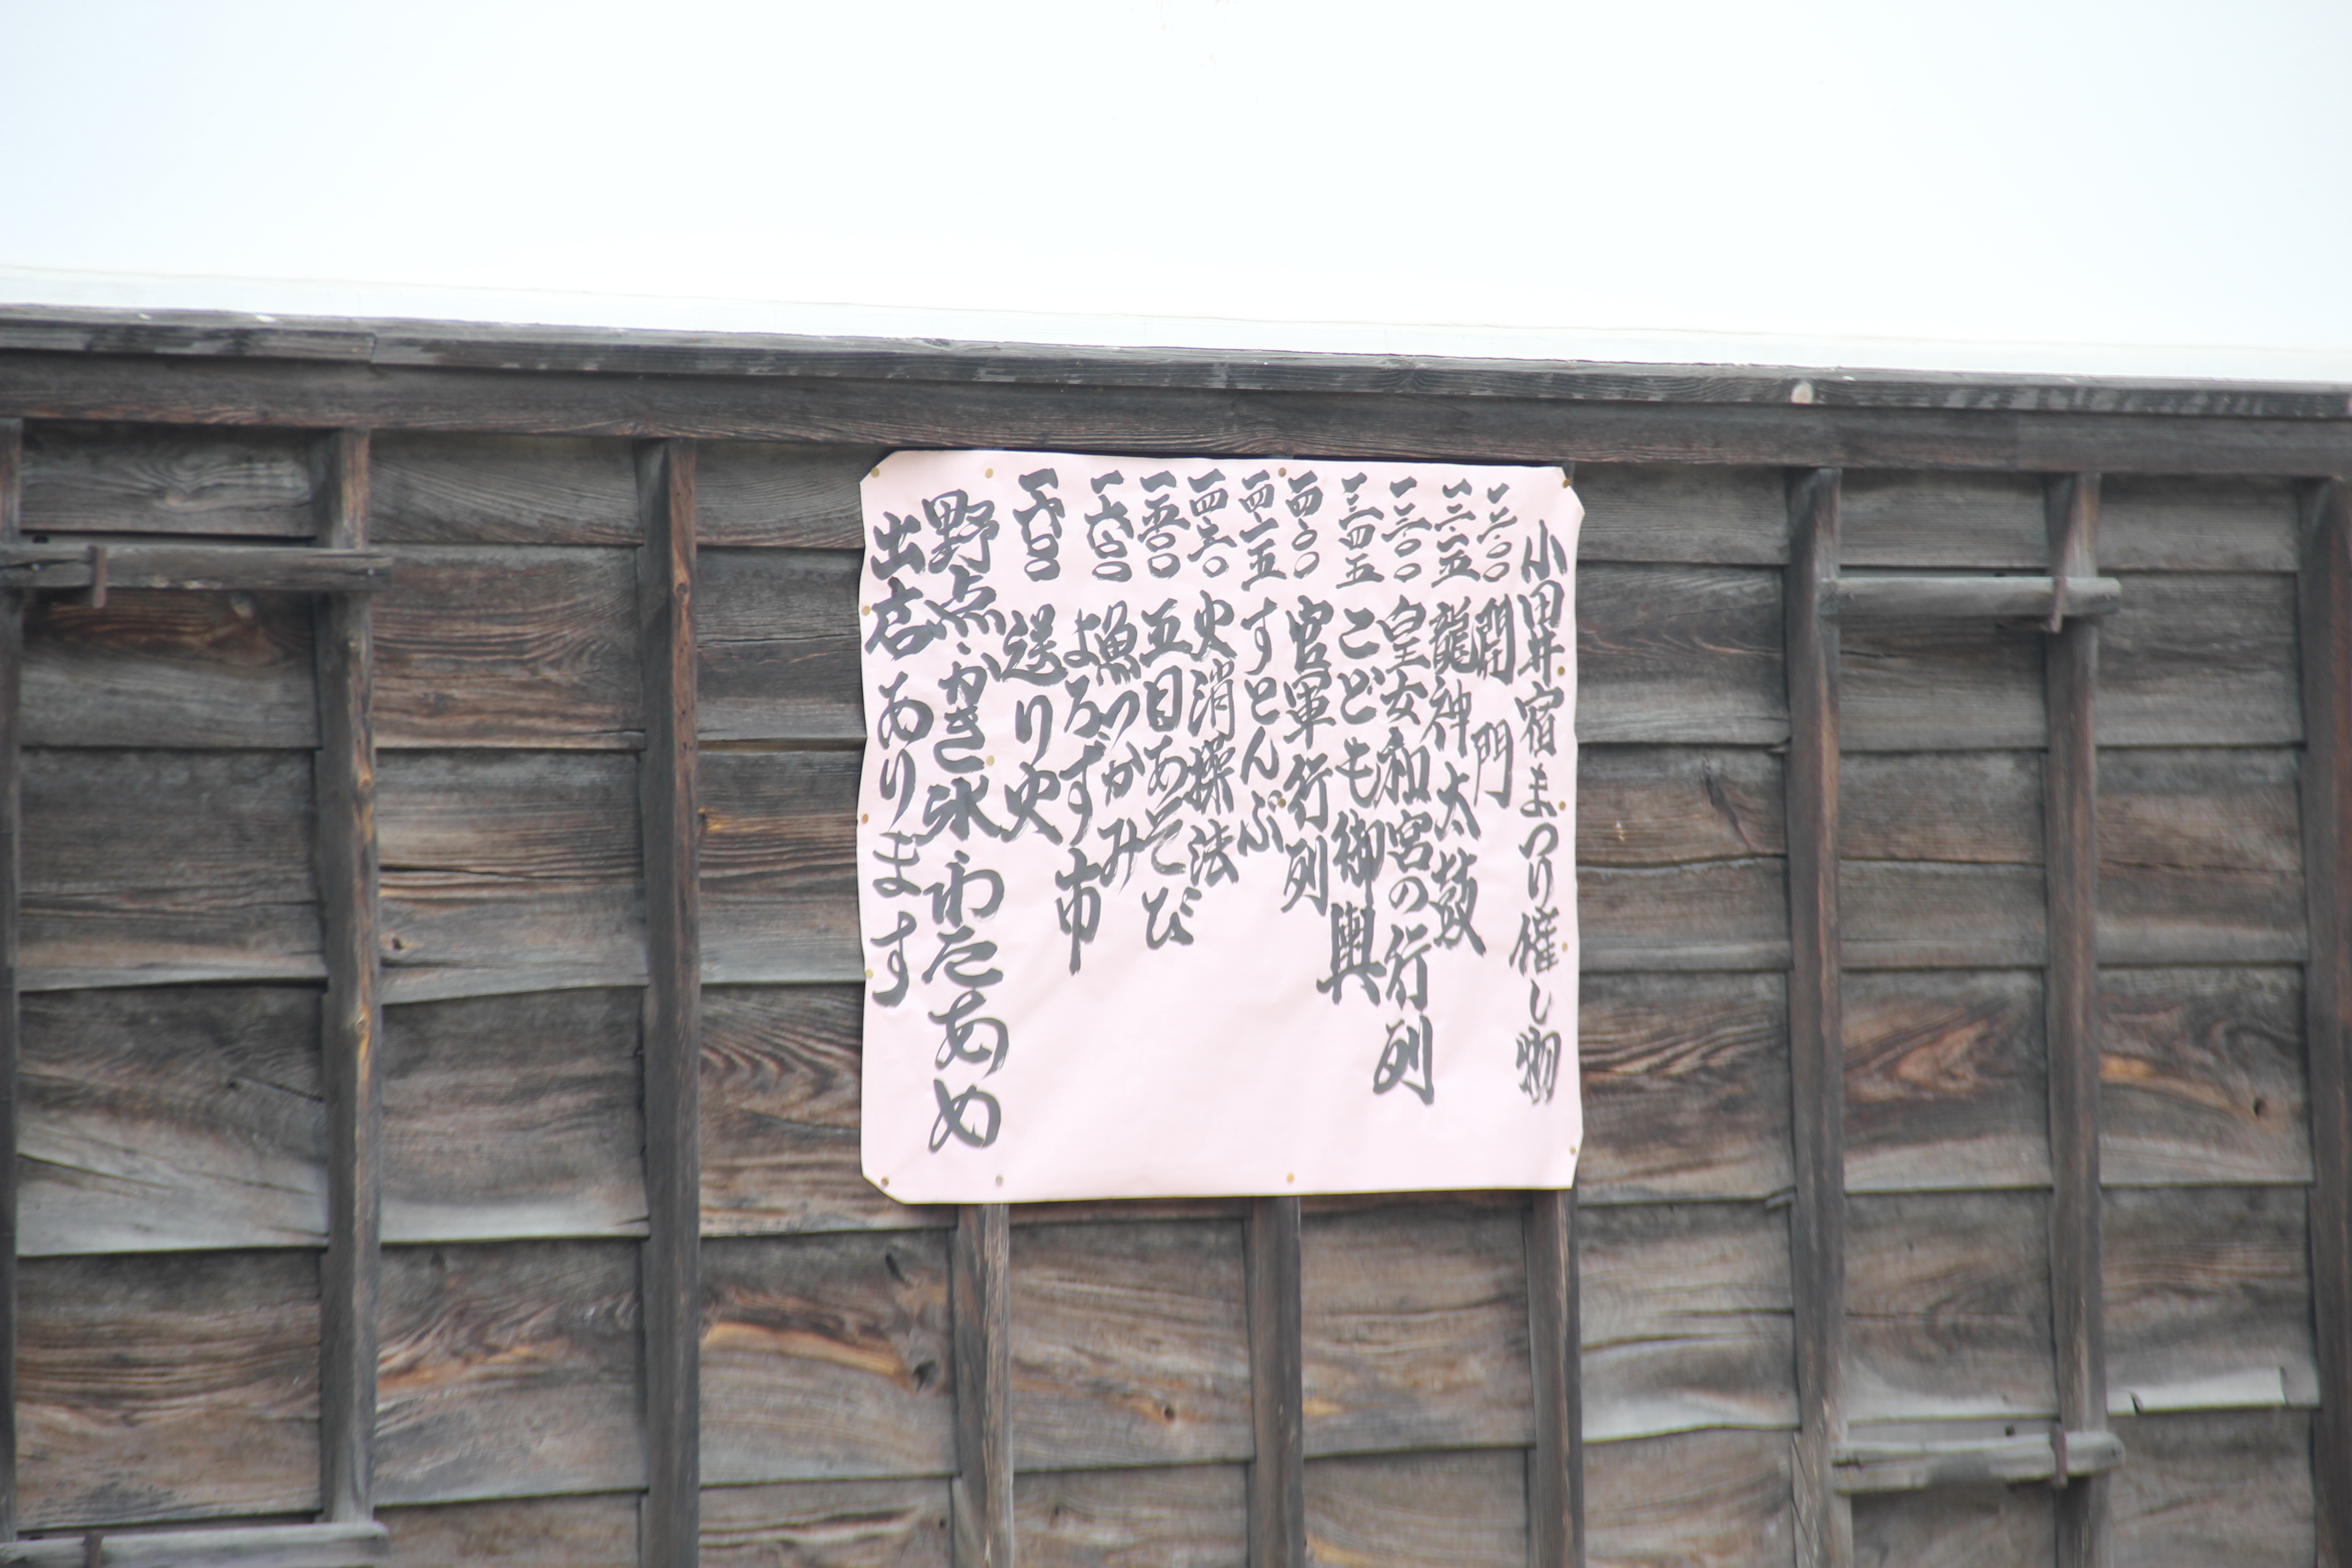 小田井宿まつり催し物
開門
龍神太鼓
皇女和宮の行列
一三・四五 こども御輿
一四・〇〇 官軍行列
一四・一五 すとんぶ
一四・三〇 火消操法
一五・〇〇 五目あそび
一六・〇〇 魚つかみ
よろず市
送り火
野点・かき氷 わたあめ
出店あります